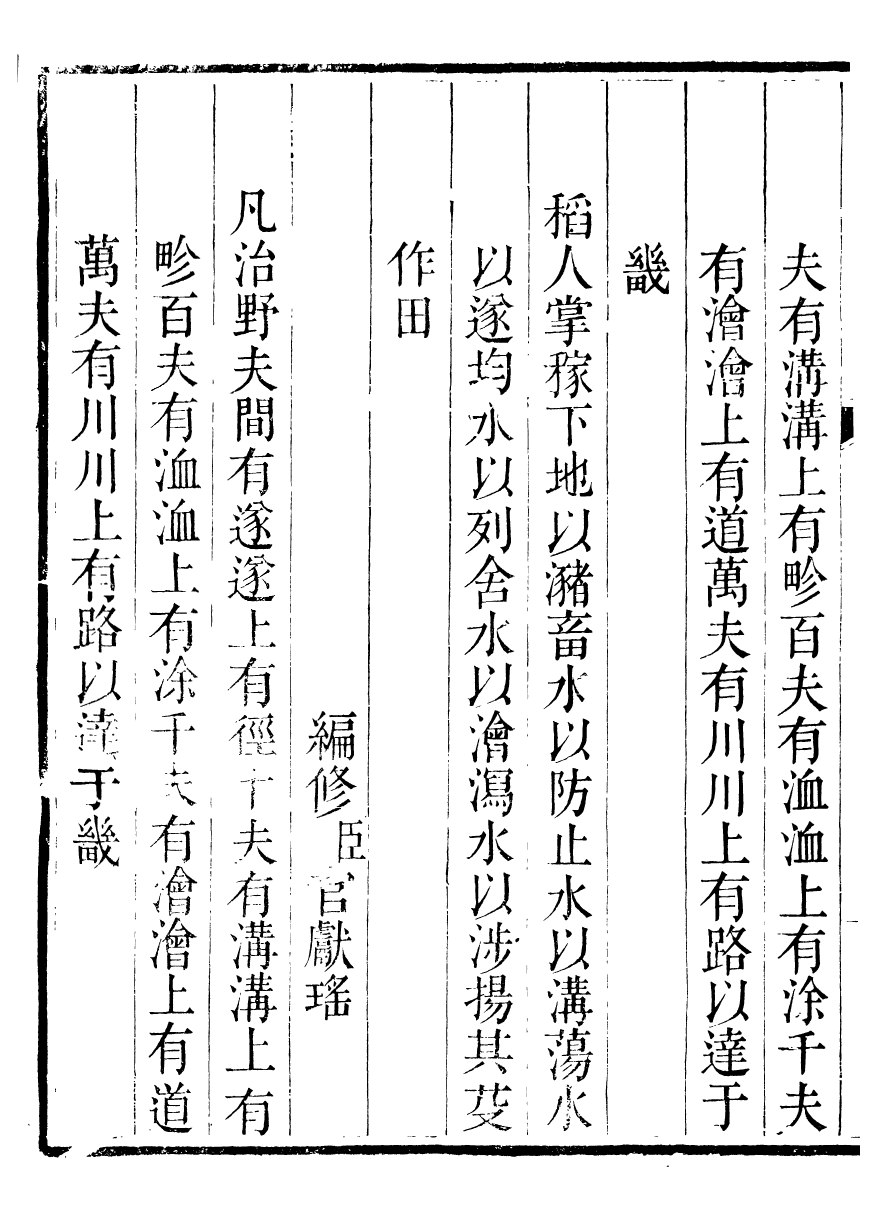 夫有溝溝上有畛百夫有洫洫上有涂千夫
有澮澮上有道萬夫有川川上有路以達于
畿
稻人掌稼下地以瀦畜水以防止水以溝蕩水
以遂均水以列舍水以澮瀉水以涉揚其芟
作田
編修臣官獻瑤
凡治野夫間有遂遂上有徑十夫有溝溝上有
畛百夫有洫洫上有涂千夫有澮澮上有道
萬夫有川川上有路以達于畿